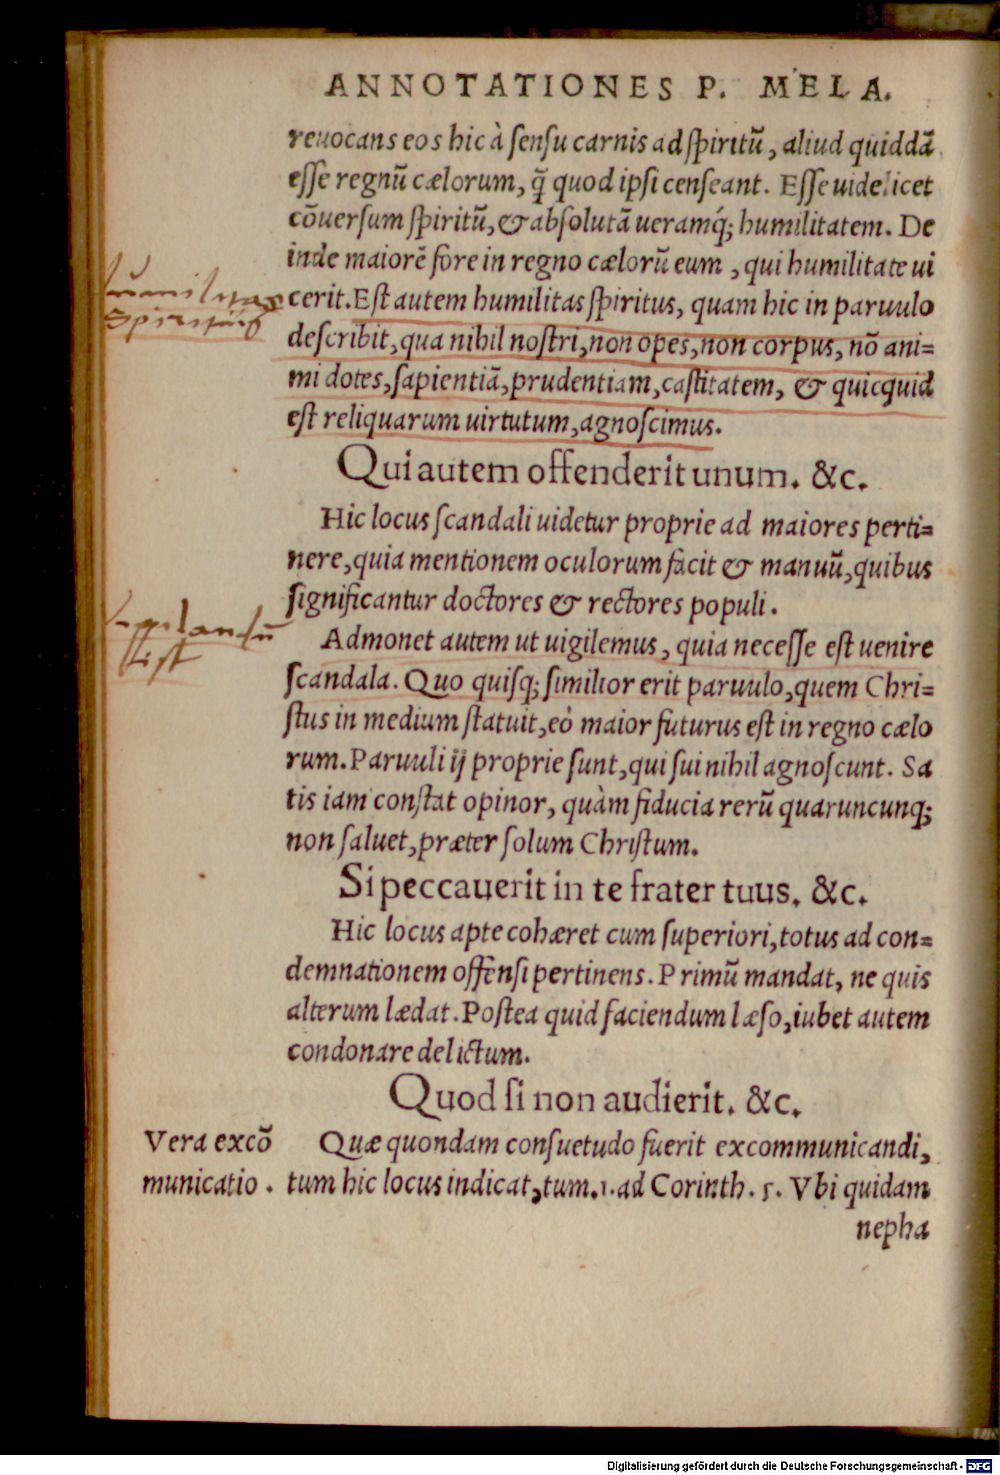 ANNOTATIONES P. MELA.
reuocans eos hic à ſenſu carnis ad ſpiritũ, aliud quiddã
eſſe regnũ cælorum, q̃ quod ipſi cenſeant. Eſſe uidelicet
cõuerſum ſpiritũ, & abſolutã ueramq́; humilitatem. De
inde maiorẽ fore in regno cælorũ eum, qui humilitate ui
humilitas
cerit. Eſt autem humilitas ſpiritus, quam hic in paruulo
Spiritus
deſcribit, qua nihil noſtri, non opes, non corpus, nõ ani=
mi dotes, ſapientiã, prudentiam, caſtitatem, & quicquid
eſt reliquarum uirtutum, agnoſcimus.
Qui autem offenderit unum. &c.
Hic locus ſcandali uidetur proprie ad maiores perti=
nere, quia mentionem oculorum facit & manuũ, quibus
ſignificantur doctores & rectores populi.
Vigilandũ
Admonet autem ut uigilemus, quia neceſſe eſt uenire
est
ſcandala. Quo quiſq; ſimilior erit paruulo, quem Chri=
ſtus in medium ſtatuit, eò maior futurus eſt in regno cælo
rum. Paruuli ij proprie ſunt, qui ſui nihil agnoſcunt. Sa
tis iam conſtat opinor, quàm fiducia rerũ quaruncunq;
non ſaluet, præter ſolum Chriſtum.
Si peccauerit in te frater tuus. &c.
Hic locus apte cohæret cum ſuperiori, totus ad con=
demnationem offenſi pertinens. Primũ mandat, ne quis
alterum lædat. Poſtea quid faciendum læſo, iubet autem
condonare delictum.
Quod ſi non audierit. &c.
Vera excõ
municatio.
Quæ quondam conſuetudo fuerit excommunicandi,
tum hic locus indicat, tum .1. ad Corinth. 5. Vbi quidam
nepha
Digitalisierung gefördert durch die Deutsche Forschungsgemeinschaft - DFG